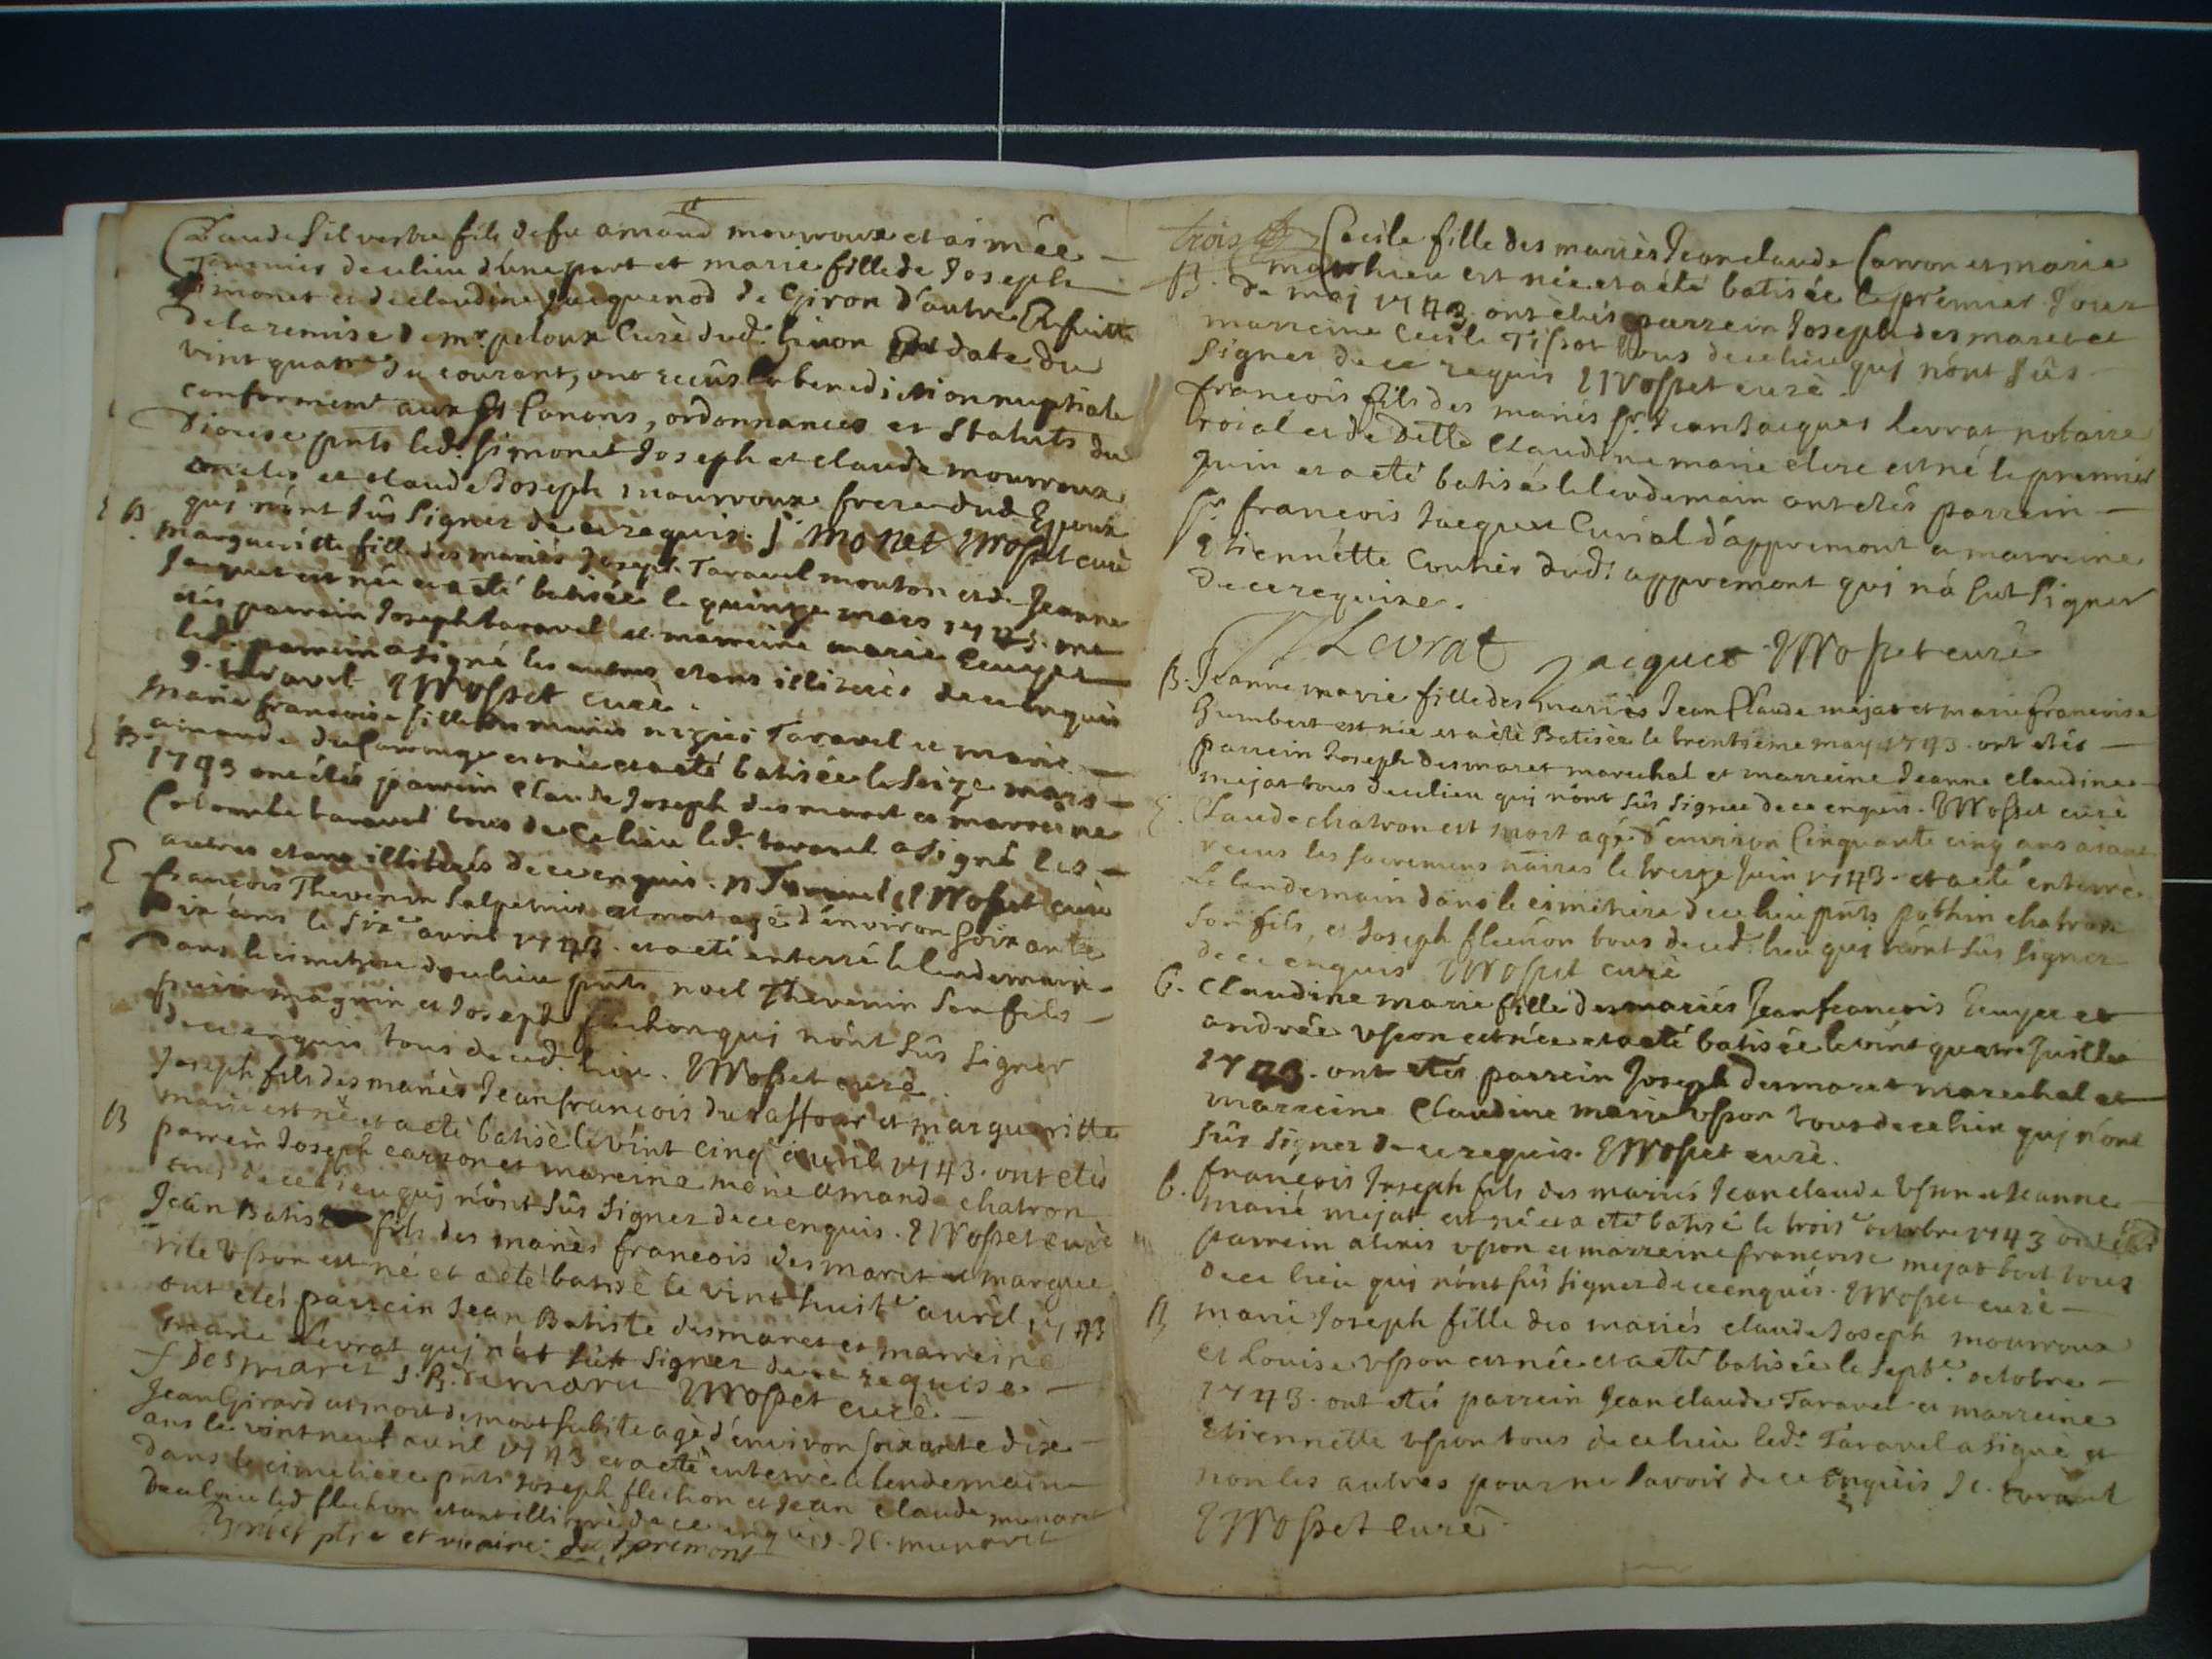 Claude Silvestre fils de fu amand mourroux et aimée
de ce lieu d'une part et marie fille de Joseph
Simonet et de claudine Jacquenod de Giron d'autre Ensuitte
de la remise de mr. peloux Curé dud. Giron En date du
vint quatre du courant, ont reçûs la benediction nuptiale
conformemt aux Sts Canons, ordonnances et Statuts du
Diocese pnts led. Simonet Joseph et claude mourroux
oncles et claude Joseph mourroux frere dud. Epoux
qui n'ont sûs signer de ce requis. J. monet EMosset curé
B. marguerítte fille des mariés Joseph Taravel mouton et de Jeanne
Jacquet est née et a eté batisée le quinze mars 1743. ont
étés parrain Joseph taravel et marreine marie Ecuyer
led. parrein a signé les autres etans illiterés de ce enquis
J. taravel EMosset curé.
B. Marie francoise fille des mariés Taravel et marie
amande du est née et a eté batisée le seize mars
1743 ont étés parrein Claude Joseph desmaret et marreine
Colombe taravel tous de ce lieu led. taravel a signé les
autres etans illiterés de ce enquis. EMosset curé
E françois Thevenin Salpetrier est mort agé d'environ soixante
dix ans le sixe avril 1743. et a eté enterré le lendemain
dans le cimetiere de ce lieu pnts noel Thevenin son fils
magnin et Joseph flechon qui n'ont sûs signer
de ce enquis tous de ced. lieu. EMosset curé
B Joseph fils des mariés Jean francois duraffour et marguerite
marie est né et a eté batisé le vint cinq avril 1743. ont etés
parrein Joseph carron et marreine marie amande chatron
tous de ce lieu qui n'ont sûs signer de ce enquis. EMosset curé
Jean Batiste fils des mariés francois desmaret et margue
rite Vsson est né et a eté batisé le vint huite avril 1743
ont etés parrein Jean Batiste desmaret et marreine
marie Levrat qui n'at sût signer de ce requise.
f desmaret J. B. demaret EMosset curé.
Jean Girard est mort de mort subite agé d'environ soixante dix
ans le vint neuf avril 1743 et a eté enterré le lendemain
dans le cimetiere pnts Joseph flechon et Jean Claude munaret
de ce lieu led flechon etant illiteré de ce enquis. JC. munaret
ptre et vicaire
trois
B. Cecile fille des mariés Jean claude Carron et marie
mathieu est née et a été batisée le premier Jour
de maj 1743. ont etés parrein Joseph des maret et
marreine Cecile Tissot tous de ce lieu qui n'ont sûs
signer de ce requis EMosset curé.
francois fils des mariés Sr. Jean Jacques Levrat notaire
roial et de Dlle Claudine marie clerc est né le premier
Juin et a eté batisé le lendemain ont etés parrein
Sr. francois Jacques Curial d'appremont et marreine
Etiennette Coutier dud. appremont qui n'a sut signer
de ce requise.
Levrat Jacques EMosset curé
B. Jeanne marie fille des mariés Jean Claude mejat et marie francoise
Humbert est née et a eté Batisée le trentieme may 1743. ont etés
parrein Joseph desmaret marechal et marreine Jeanne claudine
mejat tous de ce lieu qui n'ont sûs signer de ce enquis. EMosset curé
E. Claude chatron est mort agé d'environ Cinquante cinq ans aiant
recus les sacremens naires le treize Juin 1743. et a eté enterré
le landemain dans le cimetiere de ce lieu pnts pothin chatron
son fils, et Joseph flechon tous de ced. lieu qui n'ont sûs signer
de ce enquis EMosset curé
B. Claudine marie fille des mariés Jean francois Ecuyer et
andrée Vsson est née et a eté batisée le vint quatre Juillet
1743. ont etés parrein Joseph Desmaret marechal et
marreine Claudine marie Vsson tous de ce lieu qui n'ont
sûs signer de ce requis. EMosset curé.
b. françois Joseph fils des mariés Jean claude Vsson et Jeanne
marie mejat est né et a eté batisé le troise octobre 1743 ont etés
parrein alexis Vsson et marreine francoise mejat tous
de ce lieu qui n'ont sûs signer de ce enquis. EMosset curé
B marie Joseph fille des mariés claude Joseph mourroux
et Louise Vsson est née et a eté batisée le septe. octobre
1743. ont étés parrein Jean claude Taravel et marreine
Etiennette Vsson tous de ce lieu led. Taravel a signé et
non les autres pour ne savoir de ce enquis JC. taravel
EMosset curé